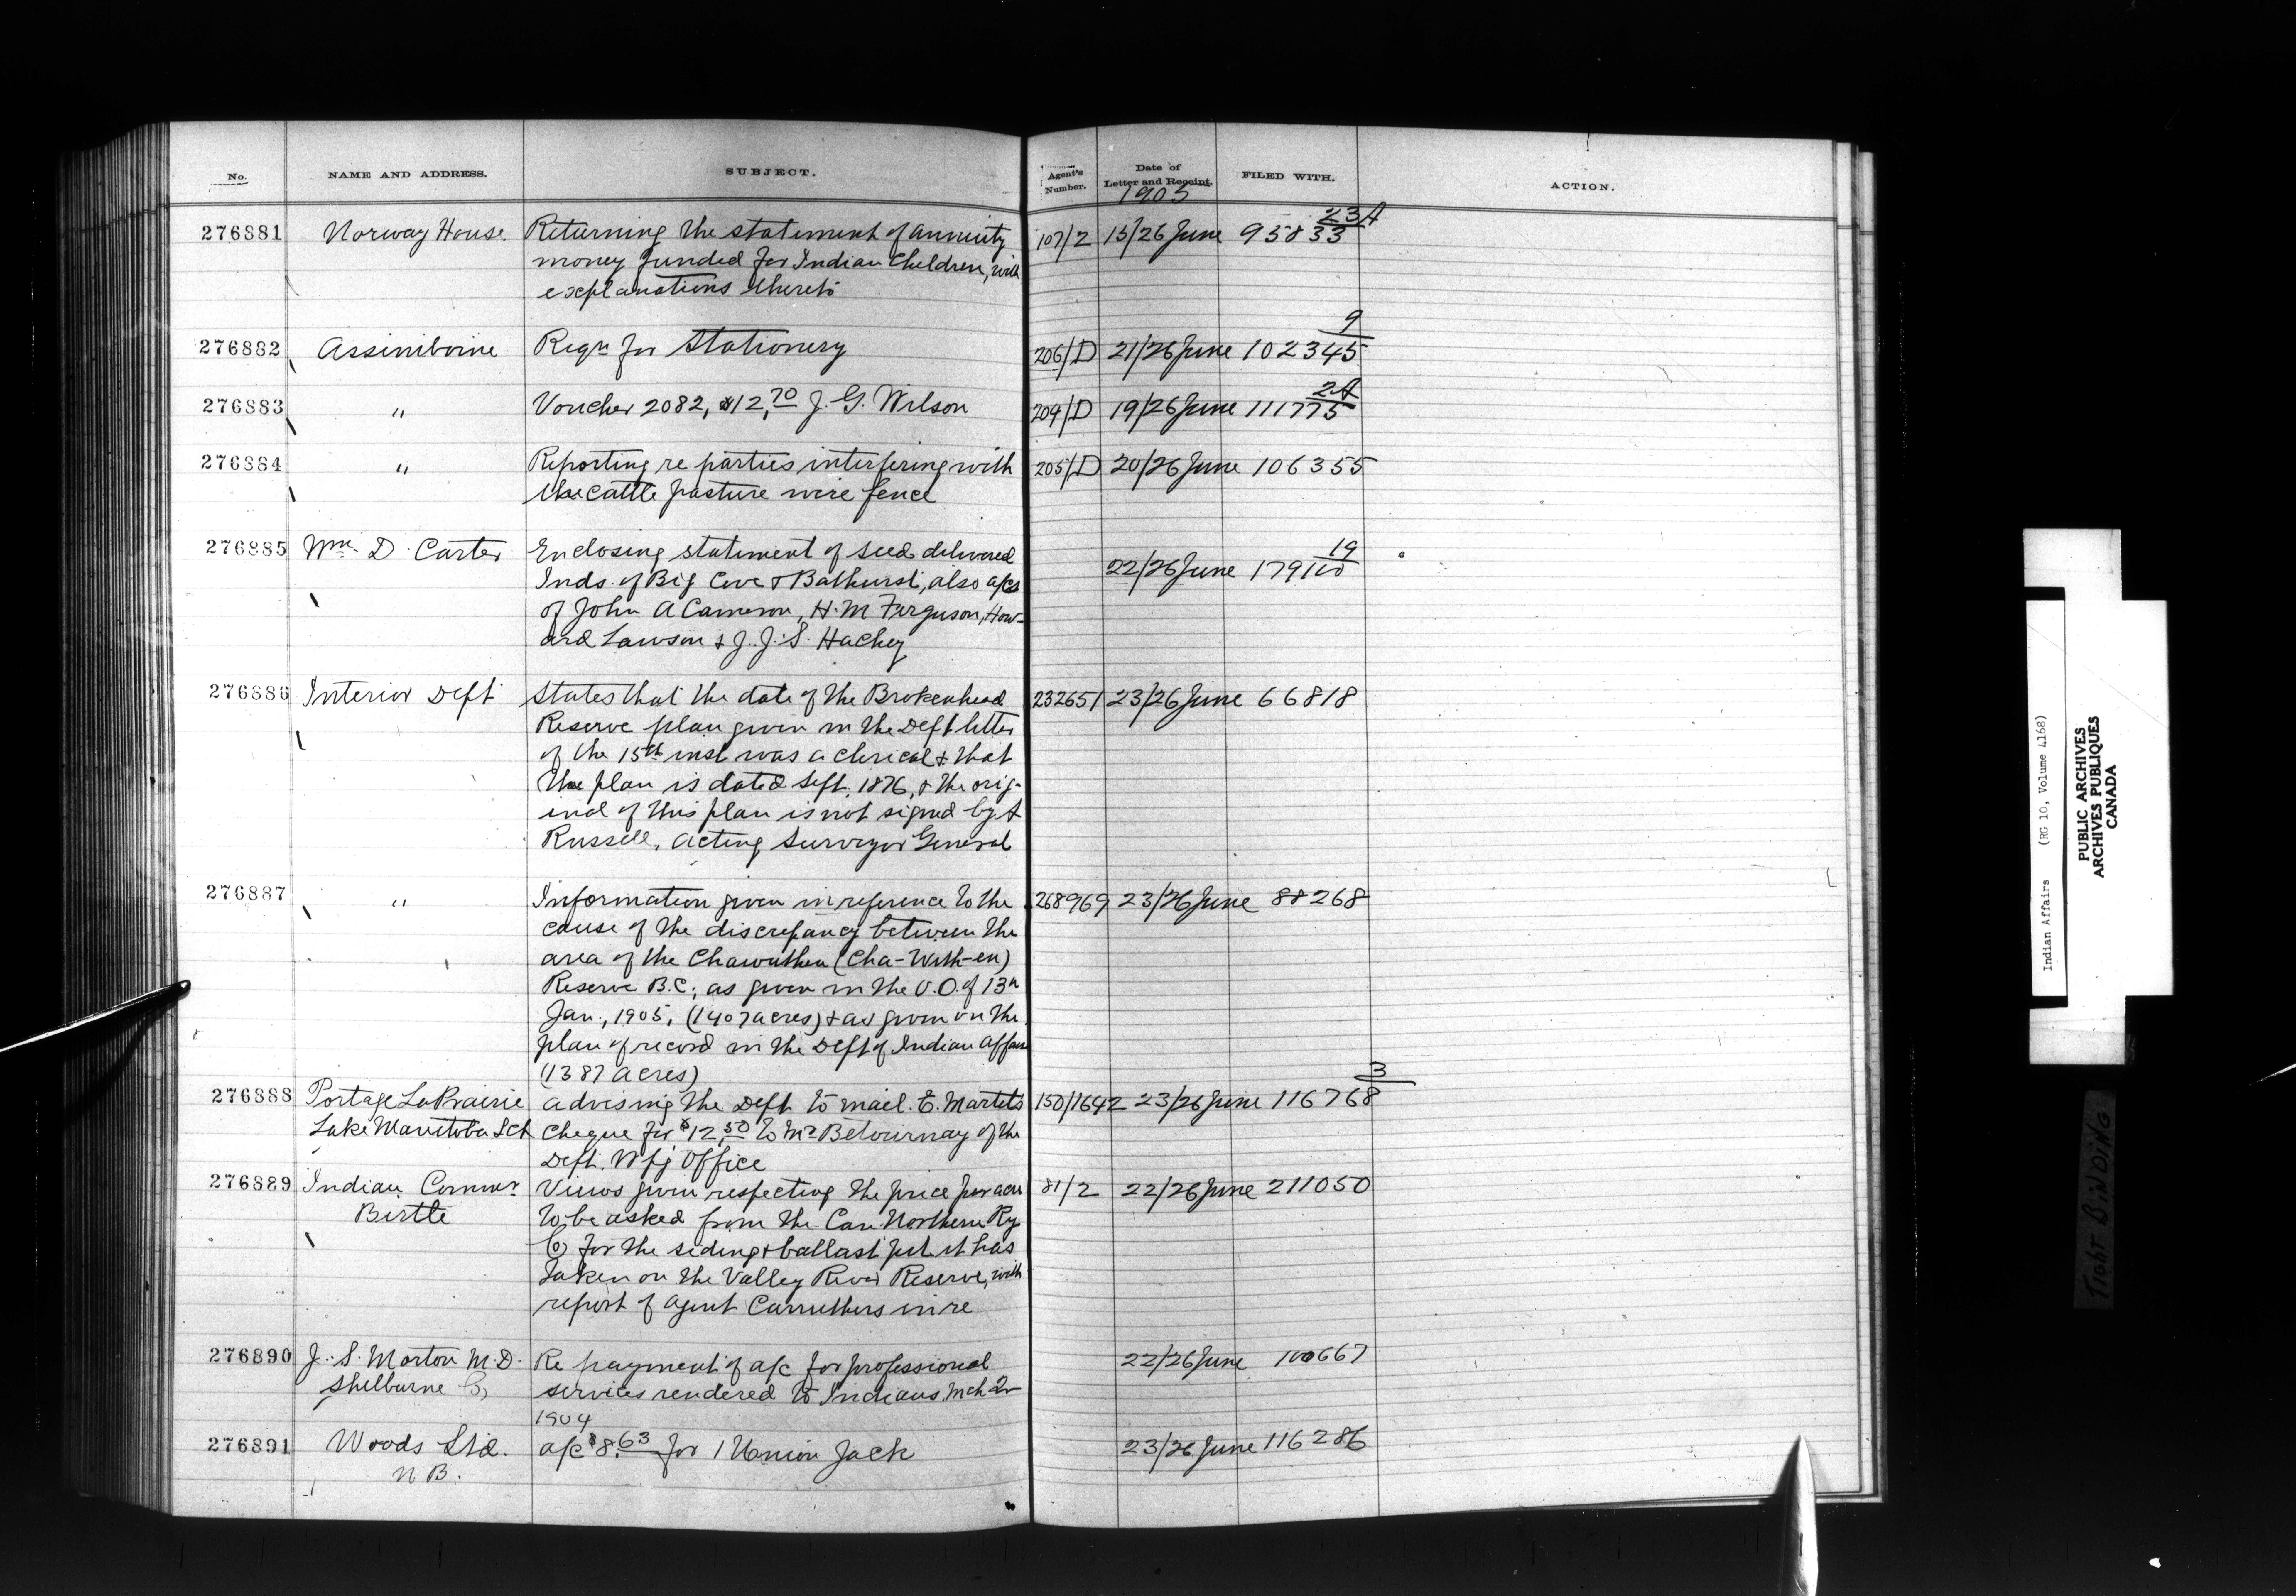 No. NAME AND ADDRESS. SUBJECT. Agent's Number. Date of Letter and Receipt. FILED WITH. ACTION.
1905
276881 Norway House Returning the statement of annuity 107/2 15/26 June 95833 23A
money funded for Indian Children, with
explanations thereto
276882 Assiniboine Reqn for Stationery 206/D 21/26 June 102345 9
276883 " Voucher 2082, $12.70 J. G. Wilson 209/D 19/26 June 111775 2A
276884 " Reporting re parties interfering with 205/D 20/26 June 106355
the cattle pasture wire fence
276885 Wm. D. Carter Enclosing statement of seed delivered 22/26 June 179100 19
Inds. of Big Cove & Bathurst, also a/cs
of John A Cameron, H. M Ferguson, How-
ard Lawson & J. J. S. Hachey
276886 Interior Dept States that the date of the Brokenhead 232651 23/26 June 66818
Reserve plan given in the Dept letter
of the 15th inst was a clerical & that
the plan is dated Sept. 1876, & the orig-
inal of this plan is not signed by A
Russell, Acting Surveyor General
276887 " Information given in reference to the 268969 23/26 June 88268
cause of the discrepancy between the
area of the Chawuthen (Cha-With-en)
Reserve B.C., as given in the O.O. of 13th
Jan., 1905, (1407 acres) & as given on the
plan of record in the Dept of Indian Affairs
(1387 acres)
276888 Portage La Prairie Advising the Dept to mail E. Martels 150/1642 23/26 June 116768 3
Lake Manitoba Sch cheque for $12.50 to Mr Betournay of the
Dept. Wpg Office
276889 Indian Commr Views given respecting the price per acre 81/2 22/26 June 211050
Birtle to be asked from the Can. Northern Ry
Co for the siding & ballast pit it has
taken on the Valley River Reserve, with
report of Agent Carruthers in re
276890 J. S. Morton M.D. Re payment of a/c for professional 22/26 June 100667
Shelburne Co, services rendered to Indians, Mch Qr
1904
276891 Woods Ltd. a/c $8.63 for 1 Union Jack 23/26 June 116286
N B.
Indian Affairs (RG 10, Volume 4168)
PUBLIC ARCHIVES
ARCHIVES PUBLIQUES
CANADA
TIGHT BINDING